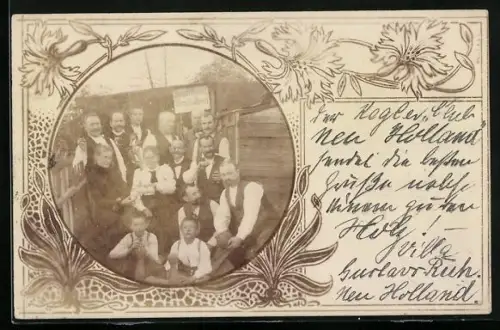 Der Kegler „Club
Neu Holland"
sendet die besten
Grüße nebst
einem guten
Holz!
Villa
Gustavs Ruh.
Neu Holland.